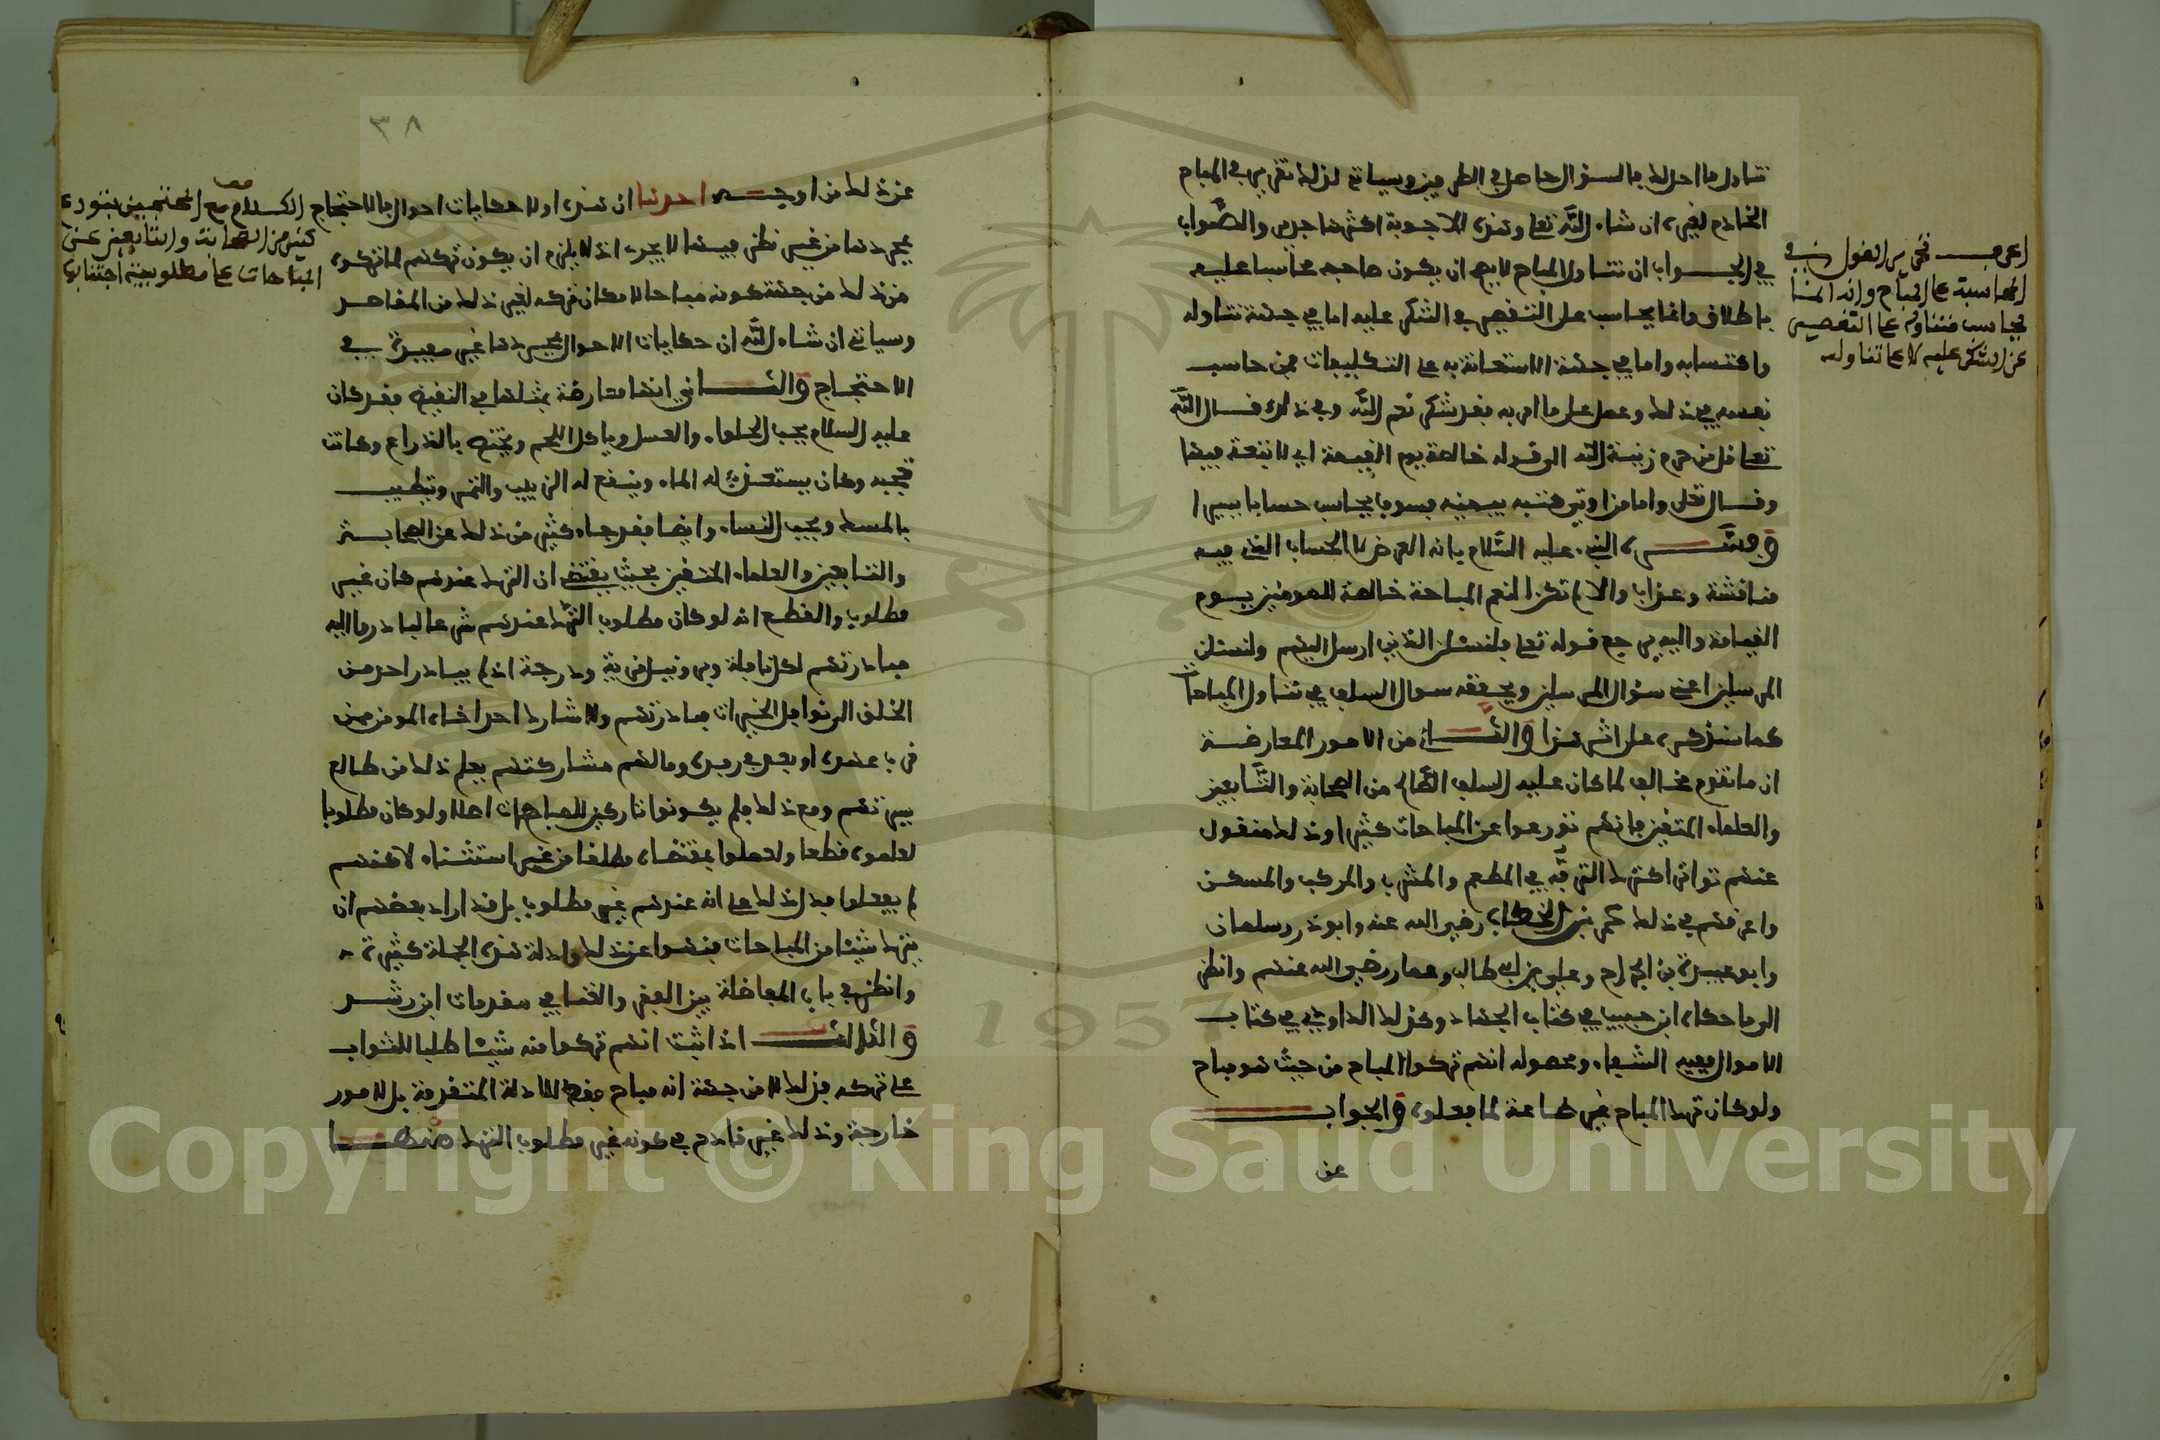 تناول ما احل له بالسؤال حاصل في الطرفين وسياتي لذلك تقرير في المباح
الخادم لغيره ان شاء الله تعلى وهذه الاجوبة اكثرها جدلي والصواب
في الجواب ان تناول المباح لا يصح ان يكون صاحبه محاسبا عليه
باطلاق وانما يحاسب على التقصير في الشكر عليه اما في جهة تناوله
واكتسابه واما في جهة الاستعانة به على التكليفات فمن حاسب
نفسه في ذلك وعمل على ما امر به فقد شكر نعم الله وفي ذلك قال الله
تعلى قل من حرم زينة الله الى قوله خالصة يوم القيمة اي لا تبعة فيها
وقال تعلى واما من اوتي كتبه بيمينه فسوف يحاسب حسابا يسيرا
وفسره النبي عليه السلام بانه العرض لا الحساب الذي فيه
مناقشة وعذاب والا لم تكن النعم المباحة خالصة للمومنين يوم
القيامة واليه يرجع قوله تعلى فلنسئلن الذين ارسل اليهم ولنسئلن
المرسلين اعني سؤال المرسلين ويحققه سوال السلف في تناول المباحات
كما سنذكره على اثر هذا والثاني من الامور المعارضة
ان ما تقدم مخالف لما كان عليه السلف الصالح من الصحابة والتابعين
والعلماء المتقين فانهم تورعوا عن المباحات كثيرا وذلك منقول
عنهم تواترا كترك الترفه في المطعم والمشرب والمركب والمسكن
واعرقهم في ذلك عمر بن الخطاب رضي الله عنه وابو ذر وسلمان
وابو عبيدة بن الجراح وعلي بن ابي طالب وعمار رضي الله عنهم وانظر
الى ما حكاه ابن حبيب في كتاب الجهاد وكذلك الداودي في كتاب
الاموال ففيه الشفاء ومحصوله انهم تركوا المباح من حيث هو مباح
ولو كان ترك المباح غير طاعة لما فعلوه والجواب
عن
المحاسبة على المباح وانه انما
يحاسب متناوله على التقصير
عن الشكر عليه لا على تناوله
٣٨
عن ذلك من اوجه احدها ان هذه اولا حكايات احوال فالاحتجاج
بمجردها من غير نظر فيها لا يجدي اذ لا يلزم ان يكون تركهم لما تركوه
من ذلك من جهة كونه مباحا لامكان تركه لغير ذلك من المقاصد
وسياتي ان شاء الله ان حكايات الاحوال بمجردها غير مفيدة في
الاحتجاج والثاني انها معارضة بمثلها في النقيض فقد كان
عليه السلام يحب الحلواء والعسل وياكل اللحم ويختص بالذراع وكانت
تعجبه وكان يستعذب له الماء وينقع له الزبيب والتمر ويتطيب
بالمسك ويحب النساء وايضا فقد جاء كثير من ذلك عن الصحابة
والتابعين والعلماء المتقين بحيث يقتضي ان الترك عندهم كان غير
مطلوب والقطع انه لو كان مطلوب الترك عندهم شرعا لبادروا اليه
مبادرتهم لكل نافلة وبر ونيل قربة ودرجة اذ لم يبادر احد من
الخلق الى نوافل الخيرات مبادرتهم ولا شارك احد اخاه المومن ممن
قرب عهده او بعد في رفده وماله مشاركتهم يعلم ذلك من طالع
سيرهم ومع ذلك فلم يكونوا تاركين للمباحات اصلا ولو كان مطلوبا
لعلموه قطعا ولعملوا بمقتضاه مطلقا من غير استثناء لاكنهم
لم يفعلوا فدل ذلك على انه عندهم غير مطلوب بل قد اراد بعضهم ان
يترك شيئا من المباحات فنهوا عن ذلك وادلة هذه الجملة كثيرة
وانظر في باب المفاضلة بين الفقر والغنا في مقدمات ابن رشد
والثالث اذا ثبت انهم تركوا منه شيئا طلبا للثواب
على تركه فذلك لا من جهة انه مباح فقط للادلة المتقدمة بل لامور
خارجة وذلك غير قادح في كونه غير مطلوب الترك منها
الكلام مع المحتجين بتورع
كثير من الصحابة والتابعين عن
المباحات على مطلوبية اجتنابها